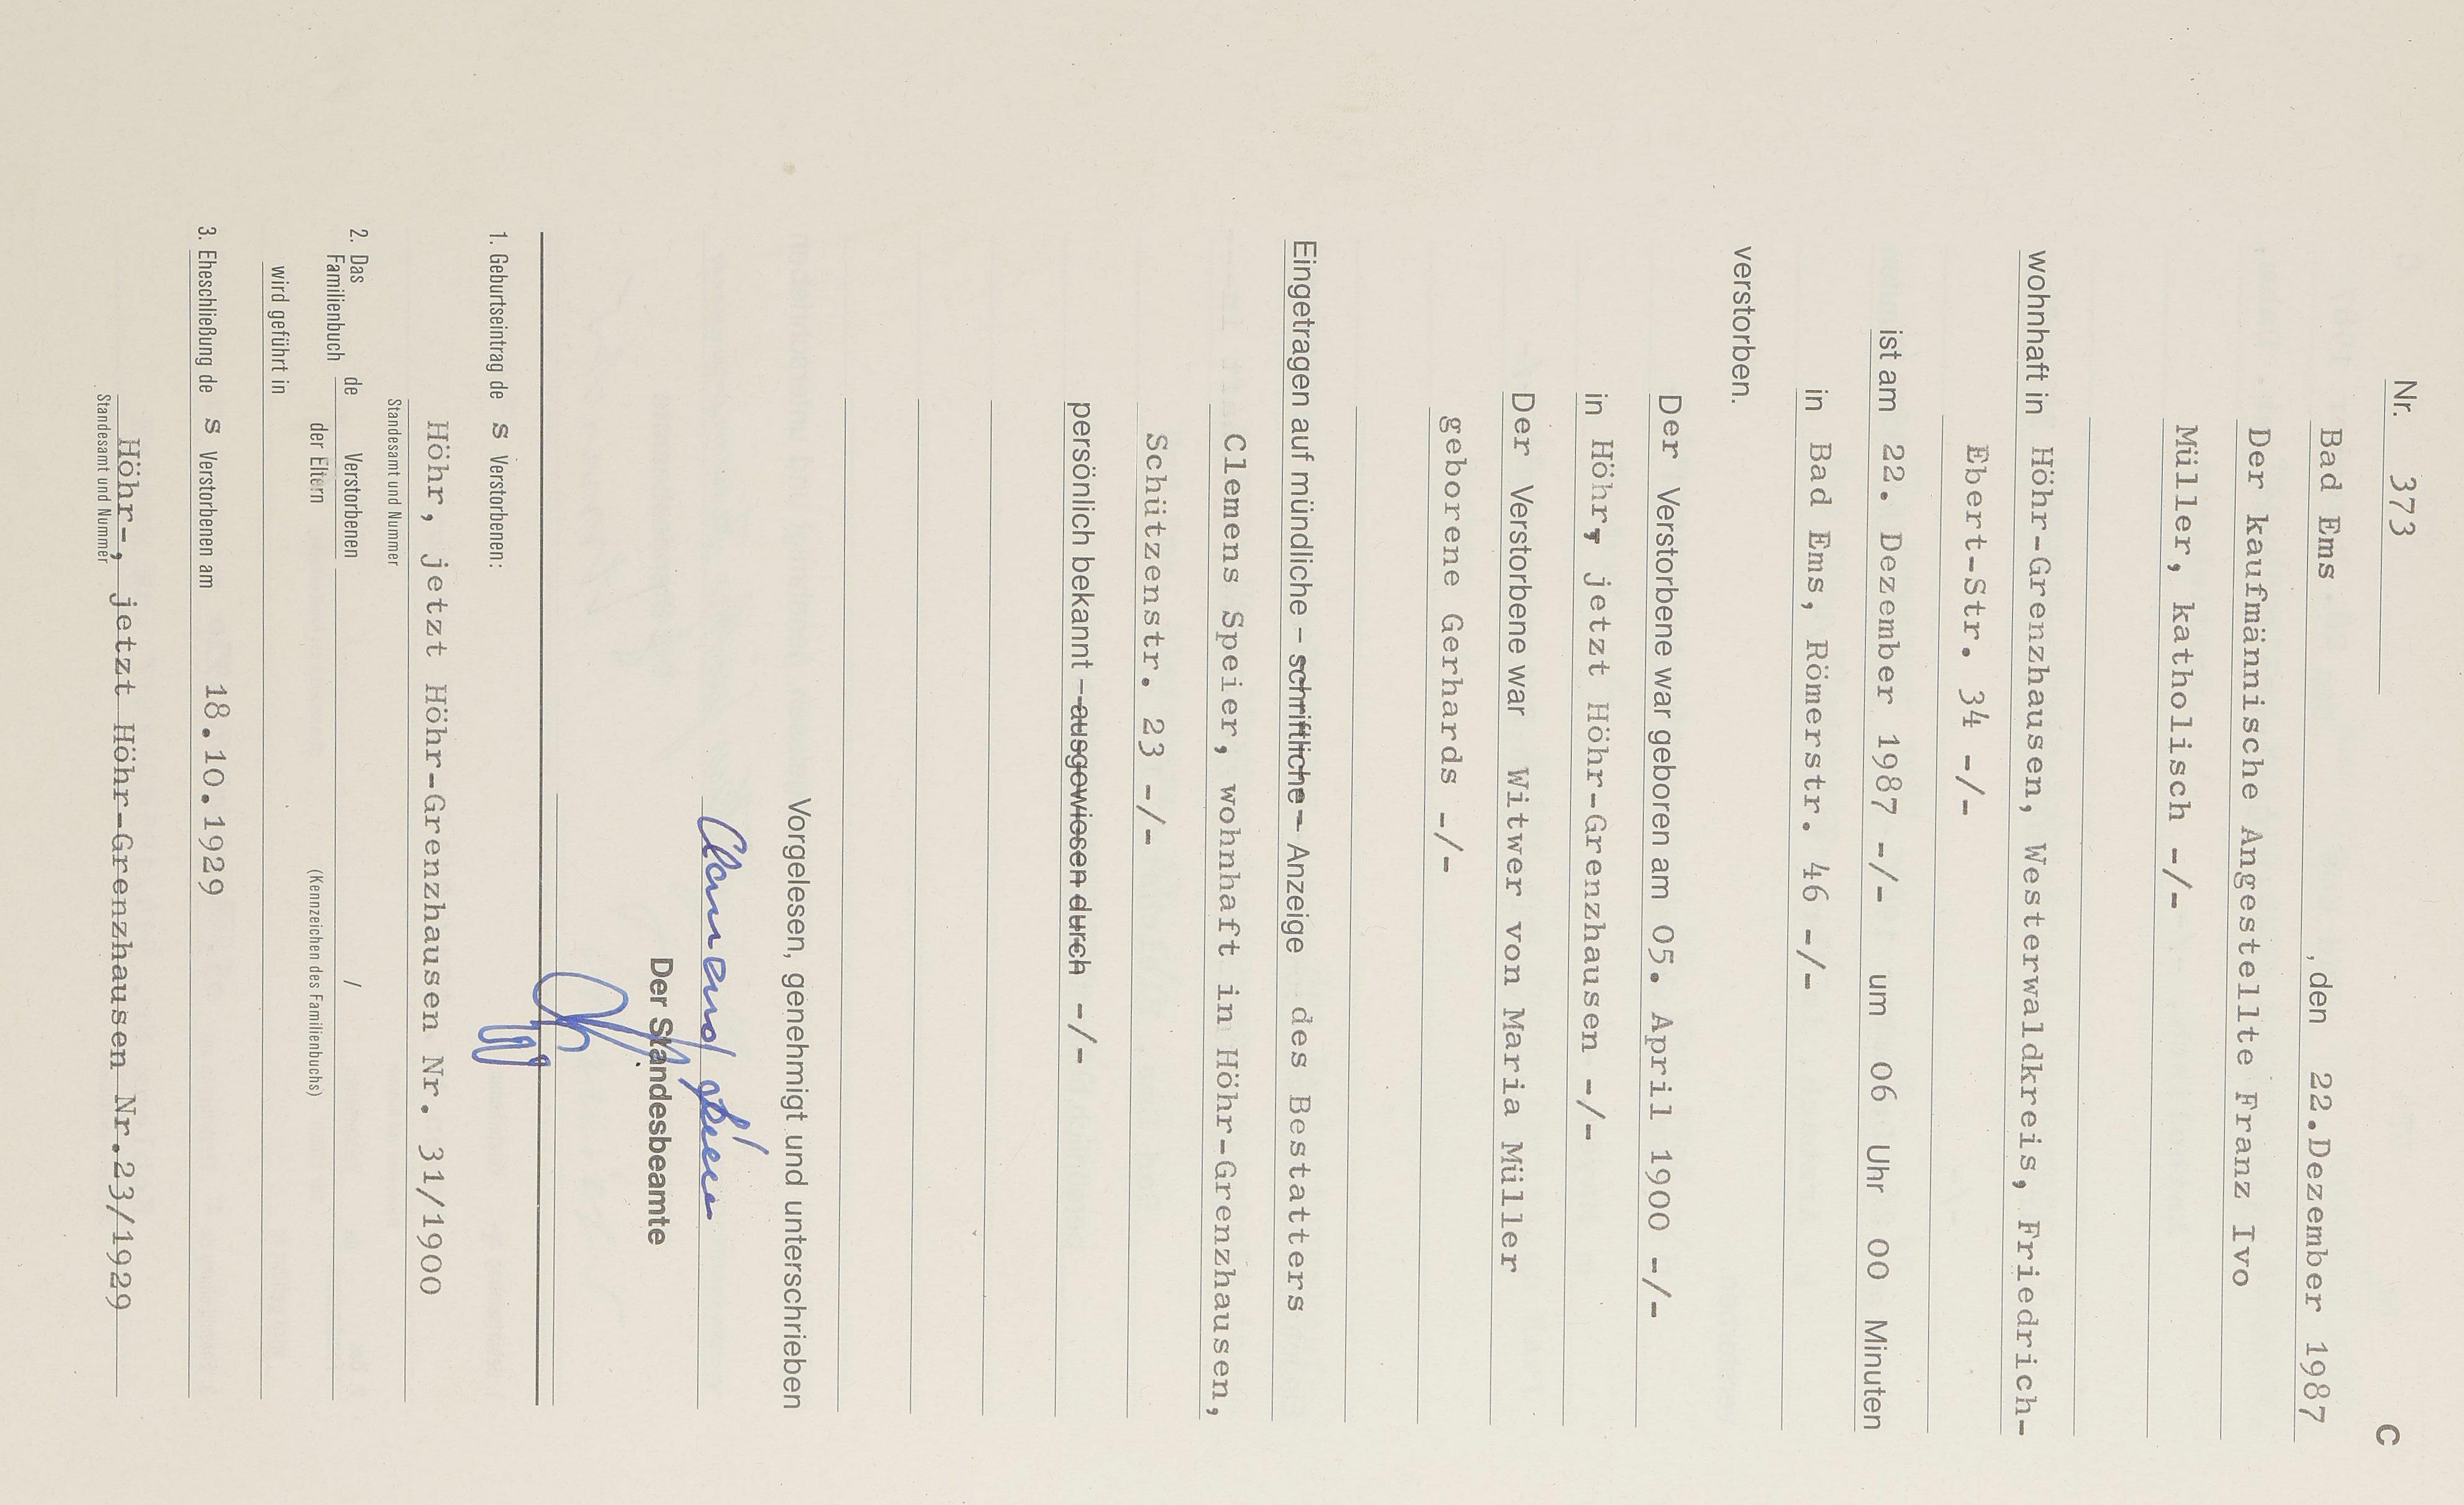 C
Nr. 373
Bad Ems , den 22.Dezember 1987
Der kaufmännische Angestellte Franz Ivo
Müller, katholisch -/-
wohnhaft in Höhr-Grenzhausen, Westerwaldkreis, Friedrich-
Ebert-Str. 34 -/-
ist am 22. Dezember 1987 -/- um 06 Uhr 00 Minuten
in Bad Ems, Römerstr. 46 -/-
verstorben.
Der Verstorbene war geboren am 05. April 1900 -/-
in Höhr, jetzt Höhr-Grenzhausen -/-
Der Verstorbene war Witwer von Maria Müller
geborene Gerhards -/-
Eingetragen auf mündliche - schriftliche - Anzeige des Bestatters
Clemens Speier, wohnhaft in Höhr-Grenzhausen,
Schützenstr. 23 -/-
persönlich bekannt - ausgewiesen durch -/-
Vorgelesen, genehmigt und unterschrieben
Clemens Speier
Der Standesbeamte
1. Geburtseintrag de s Verstorbenen:
Höhr, jetzt Höhr-Grenzhausen Nr. 31/1900
Standesamt und Nummer
2. Das Familienbuch de Verstorbenen /
der Eltern
(Kennzeichen des Familienbuchs)
wird geführt in
3. Eheschließung de s Verstorbenen am 18.10.1929
Höhr-, jetzt Höhr-Grenzhausen Nr.23/1929
Standesamt und Nummer